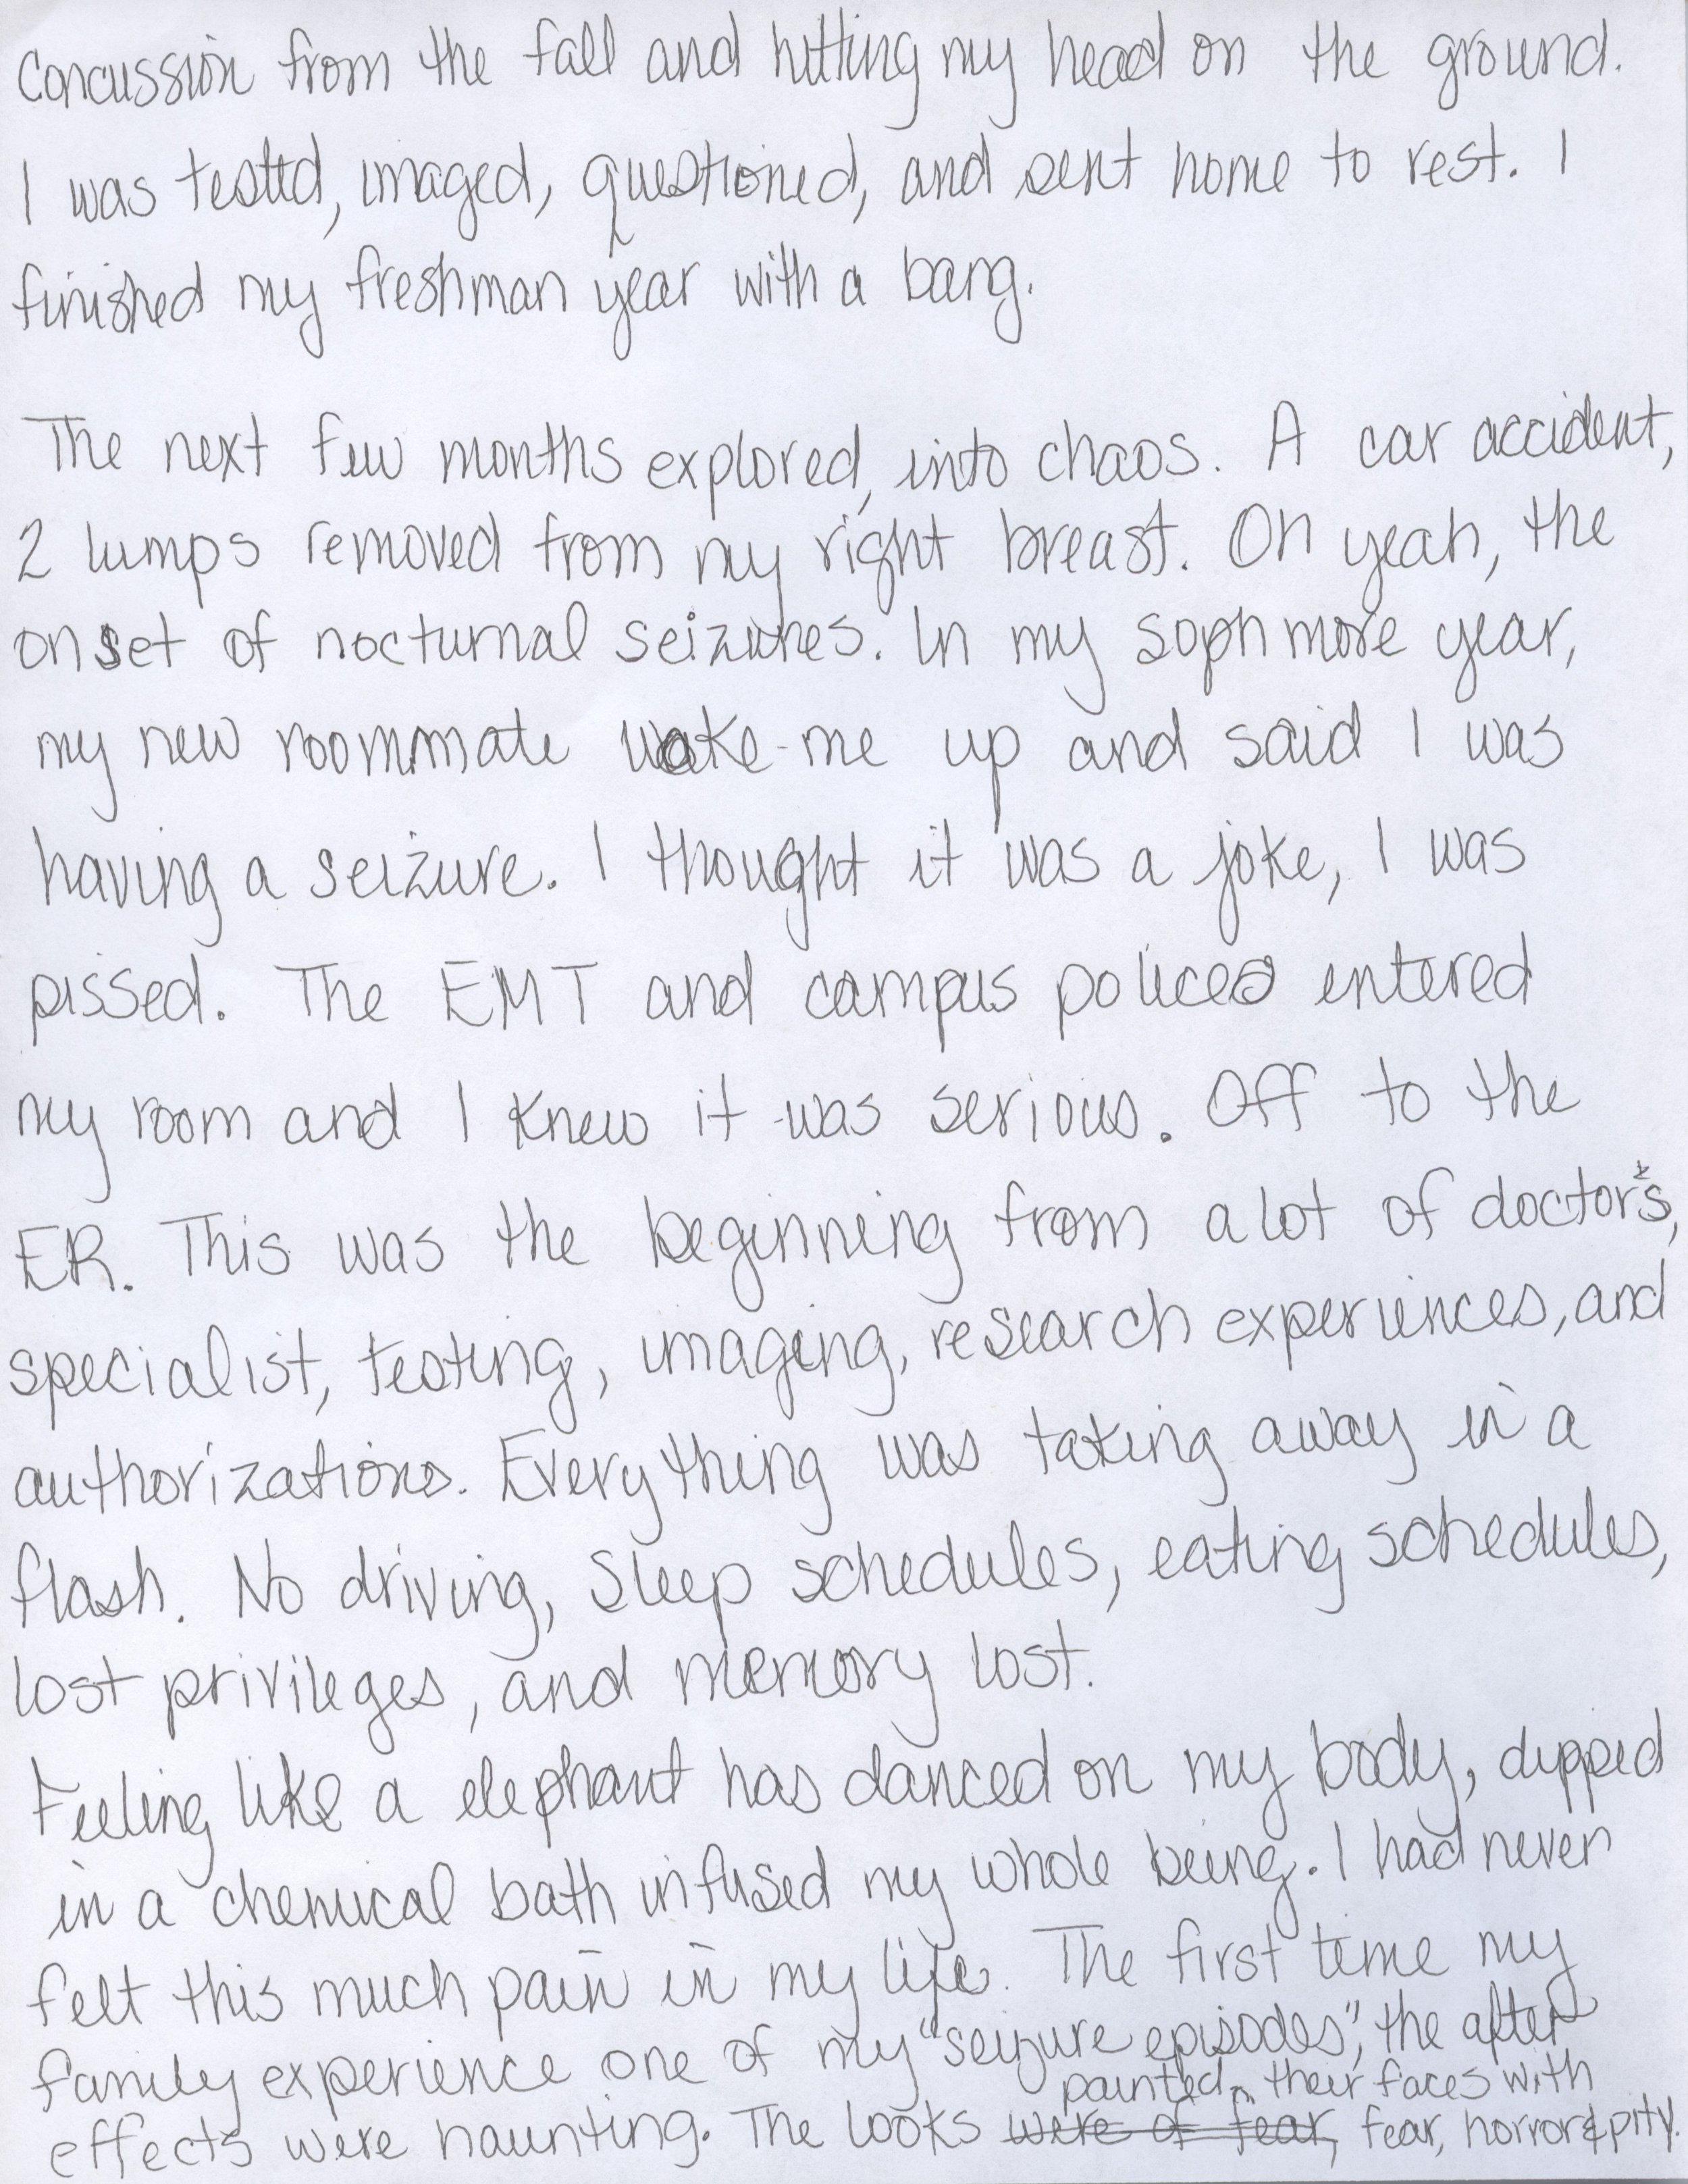 Concussion from the fall and hitting my head on the ground.
I was tested, imaged, questioned, and sent home to rest. I
finished my freshman year with a bang.
The next few months explored, into chaos. A car accident,
2 lumps removed from my right breast. Oh yeah, the
onset of nocturnal seizures. In my sophmore year,
my new roommate woke me up and said I was
having a seizure. I thought it was a joke, I was
pissed. The EMT and campus polices entered
my room and I knew it was serious. Off to the
ER. This was the beginning from a lot of doctor's,
specialist, testing, imaging, research experiences, and
authorizations. Everything was taking away in a
flash. No driving, Sleep schedules, eating schedules,
lost privileges, and memory lost.
Feeling like a elephant has danced on my body, dipped
in a chemical bath infused my whole being. I had never
felt this much pain in my life. The first time my
family experience one of my "seizure episodes", the after
effects were haunting. The looks were of fear, painted their faces with fear, horror & pity.